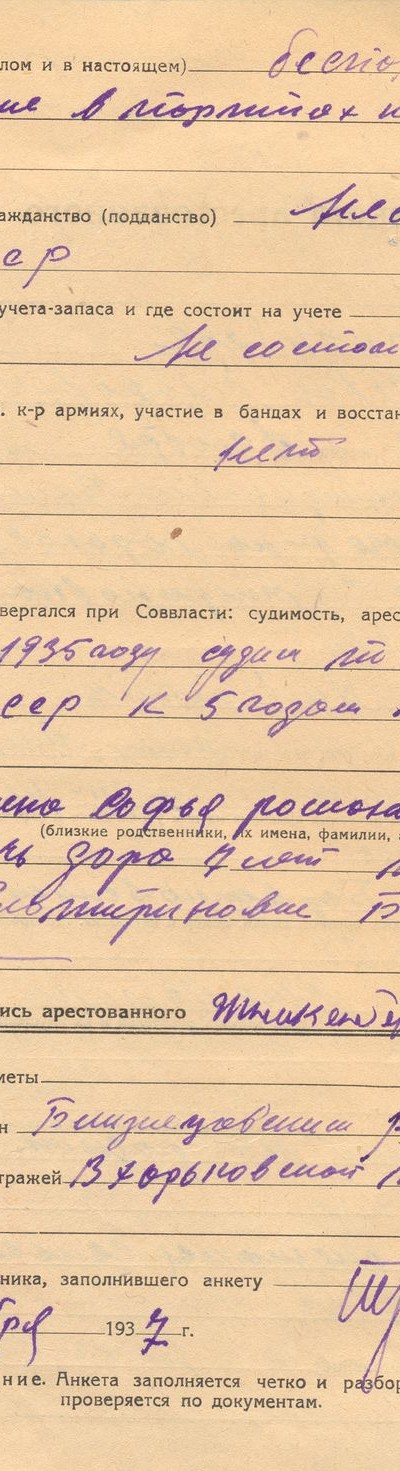 лом и в настоящем) беспа
ие в портиях н
ажданство (подданство)
сср
учета-запаса и где состоит на учете
Не состои
. к-р армиях, участие в бандах и восстан
нет
вергался при Соввласти: судимость, арес
1935 году судим
ссср к 5 годам
Софья
(близкие родственники, их имена, фамилии,
чь дора 7 лет
ись арестованного
меты
н Близнецовским р
тражей В харьковской
ника, заполнившего анкету
бря 1937 г.
ние. Анкета заполняется четко и разбор
проверяется по документам.